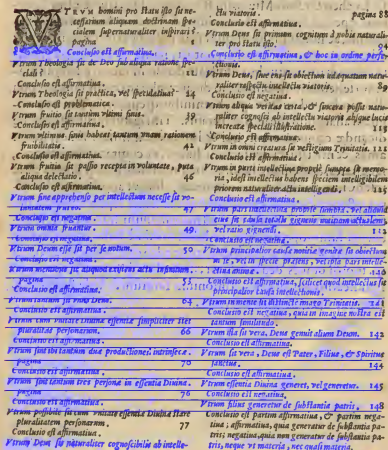 VTRVM homini pro statu isto sit ne-
cessarium aliquam doctrinam spe-
cialem supernaturaliter inspirari?
pagina 1
Conclusio est affirmatiua.
Vtrum Theologia sit de Deo sub aliqua ratione spe-
ciali?
Conclusio est affirmatiua.
Vtrum Theologia sit practica, vel speculatiua? 14
Conclusio est problematica.
Vtrum fruitio sit tantum vltimi finis. 39
Conclusio est affirmatiua.
Vtrum vltimus finis habeat tantum vnam rationem
fruibilitatis 42
Conclusio est affirmatiua.
Vtrum fruitio sit passio recepta in voluntate, puta
aliqua delectatio. 46
Conclusio est affirmatiua.
Vtrum fine apprehenso per intellectum necesse sit vo-
luntatem frui eo? 47
Conclusio est negatiua.
Vtrum omnia fruantur 49
Conclusio est negatiua.
Vtrum Deum esse sit per se notum. 50
Conclusio est negatiua.
Vtrum in entibus sit aliquid existens actu infinitum.
pagina 53
Conclusio est affirmatiua.
Vtrum tantum sit vnus Deus. 64
Conclusio est affirmatiua.
Vtrum cum vnitate diuinæ essentiæ simpliciter stet
pluralitas personarum. 66
Conclusio est affirmatiua.
Vtrum sint ibi tantum duæ productiones intrinsecæ.
pagina 70
Conclusio est affirmatiua.
Vtrum sint tantum tres personæ in essentia Diuina.
pagina 76
Conclusio est affirmatiua.
Vtrum possibile sit cum vnitate essentiæ Diuinæ stare
pluralitatem personarum. 77
Conclusio est affirmatiua.
Vtrum Deus sit naturaliter cognoscibilis ab intelle-
ctu viatoris pagina 88
Conclusio est affirmatiua.
Vtrum Deus sit primum cognitum à nobis naturali-
ter pro statu isto. 94
Conclusio est affirmatiua, & hoc in ordine perfe-
ctionis.
Vtrum Deus, siue ens sit obiectum adæquatum natu-
raliter respectu intellectus viatoris. 89
Conclusio est negatiua.
Vtrum aliqua veritas certa, & syncera possit natu-
raliter cognosci ab intellectu viatoris absque lucis
increatæ speciali illustratione.
Conclusio est affirmatiua.
Vtrum in omni creatura sit vestigium Trinitatis. 121
Conclusio est affirmatiua.
Vtrum in parte intellectiua propriè sumpta sit memo-
ria, idest intellectus habens speciem intelligibilem
priorem naturaliter actu intelligendi.
Conclusio est affirmatiua.
Vtrum pars intellectiua propriè sumpta, vel aliquid
eius sit causa totalis gignens
vel ratio gignendi
Conclusio est negatiua.
Vtrum principalior causa notitiæ genitæ sit obiectum
in se, vel in specie præsens, vel ipsa pars intelle-
ctiua animæ. 140
Conclusio est affirmatiua, scilicet quod intellectus sit
principalior causa intellectionis
Vtrum in mente sit distinctè imago Trinitatis. 141
Conclusio est negatiua, quia in imagine nostra est
tantum similitudo.
Vtrum illa sit vera, Deus genuit alium Deum. 142
Conclusio est affirmatiua.
Vtrum sit vera, Deus est Pater, Filius, & Spiritus
sanctus. 144
Conclusio est affirmatiua.
Vtrum essentia Diuina generet, vel generetur. 145
Conclusio est negatiua.
Vtrum filius generetur de substantia patris. 148
Conclusio est partim affirmatiua, & partim nega-
tiua; affirmatiua, quia generatur de substantia pa-
tris; negatiua, quia non generatur de substantia pa-
tris, neque vt materia, nec quasi materia.